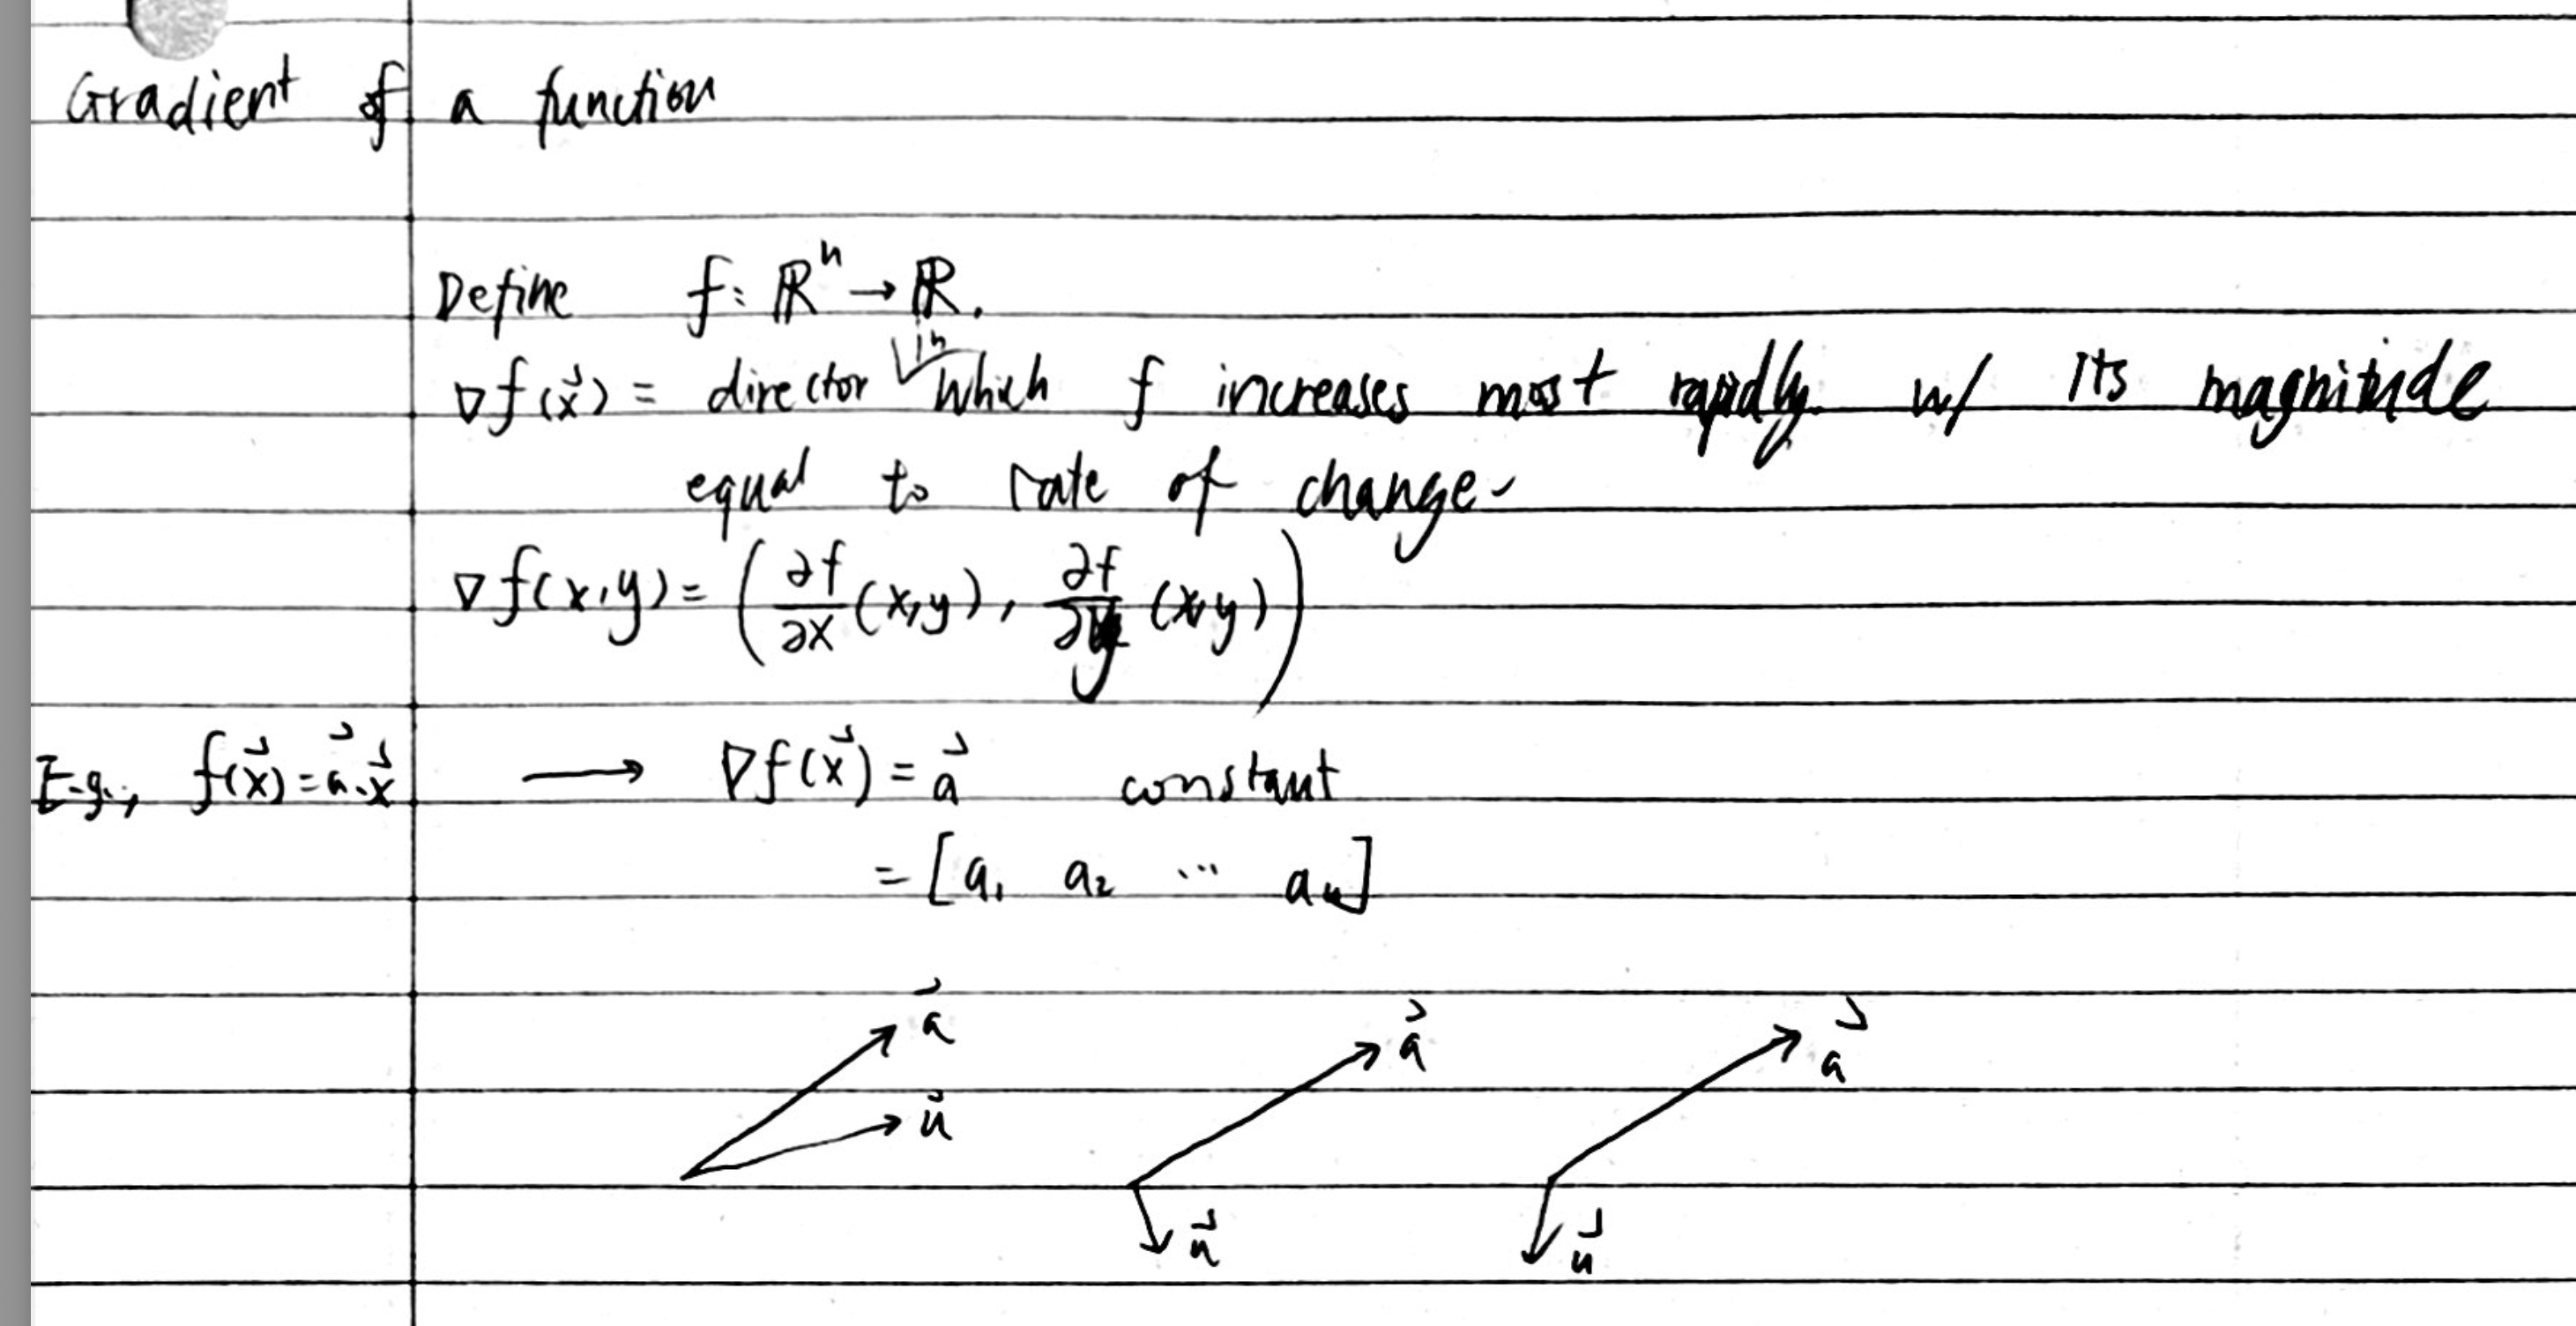 Gradient of a function
Define f: ℝⁿ → ℝ.
∇f(x⃗) = director in which f increases most rapidly. w/ its magnitude
equal to rate of change.
∇f(x,y) = (∂f/∂x (x,y), ∂f/∂y (x,y))
E.g., f(x⃗) = a⃗·x⃗ → ∇f(x⃗) = a⃗ constant
= [a₁ a₂ ⋯ aₙ]
a⃗ a⃗ a⃗
u⃗
u⃗ u⃗